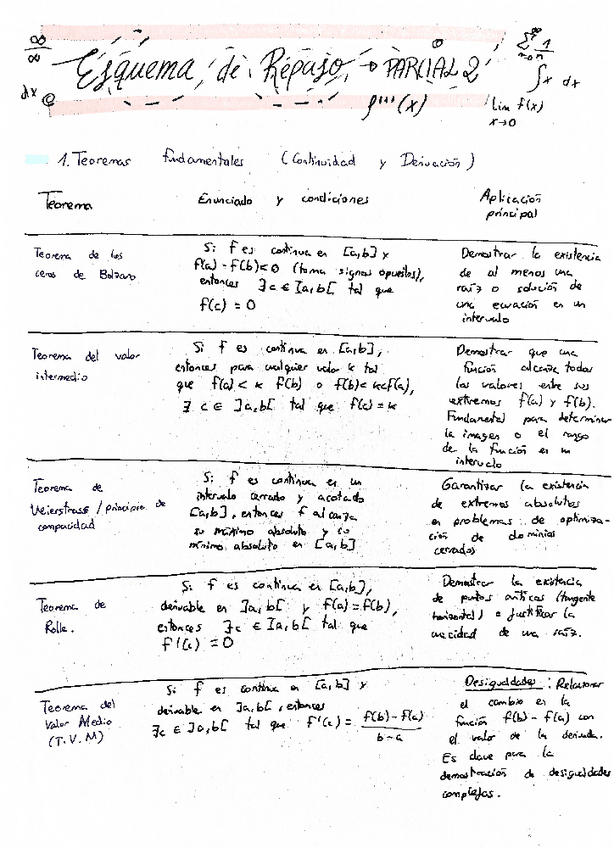 ∞/∞
Esquema de Repaso → PARCIAL 2
∑ 1/n
n=0
∞
∫x dx
dx
f'''(x)
lim f(x)
x→0
1. Teoremas fundamentales (Continuidad y Derivación)
Teorema
Enunciado y condiciones
Aplicación
principal
Teorema de los
ceros de Bolzano
Si f es continua en [a,b] y
f(a)·f(b)<0 (toma signos opuestos),
entonces ∃c∈]a,b[ tal que
f(c)=0
Demostrar la existencia
de al menos una
raíz o solución de
una ecuación en un
intervalo
Teorema del valor
intermedio
Si f es continua en [a,b],
entonces para cualquier valor k tal
que f(a)<k f(b) o f(b)<k<f(a),
∃ c∈ ]a,b[ tal que f(c)=k
Demostrar que una
función alcanza todos
los valores entre sus
extremos f(a) y f(b).
Fundamental para determinar
la imagen o el rango
de la función en un
intervalo
Teorema de
Weierstrass / principio de
compacidad
Si f es continua en un
intervalo cerrado y acotado
[a,b], entonces f alcanza
su máximo absoluto y su
mínimo absoluto en [a,b]
Garantizar la existencia
de extremos absolutos
en problemas de optimiza-
ción de dominios
cerrados
Teorema de
Rolle.
Si f es continua en [a,b],
derivable en ]a,b[ y f(a)=f(b),
entonces ∃c ∈ ]a,b[ tal que
f'(c)=0
Demostrar la existencia
de puntos críticos (tangente
horizontal) o justificar la
unicidad de una raíz.
Teorema del
Valor Medio
(T.V.M)
Si f es continua en [a,b] y
derivable en ]a,b[, entonces
∃c ∈ ]a,b[ tal que f'(c) = f(b)-f(a)
b-a
Desigualdades: Relacionar
el cambio en la
función f(b)-f(a) con
el valor de la derivada.
Es clave para la
demostración de desigualdades
complejas.